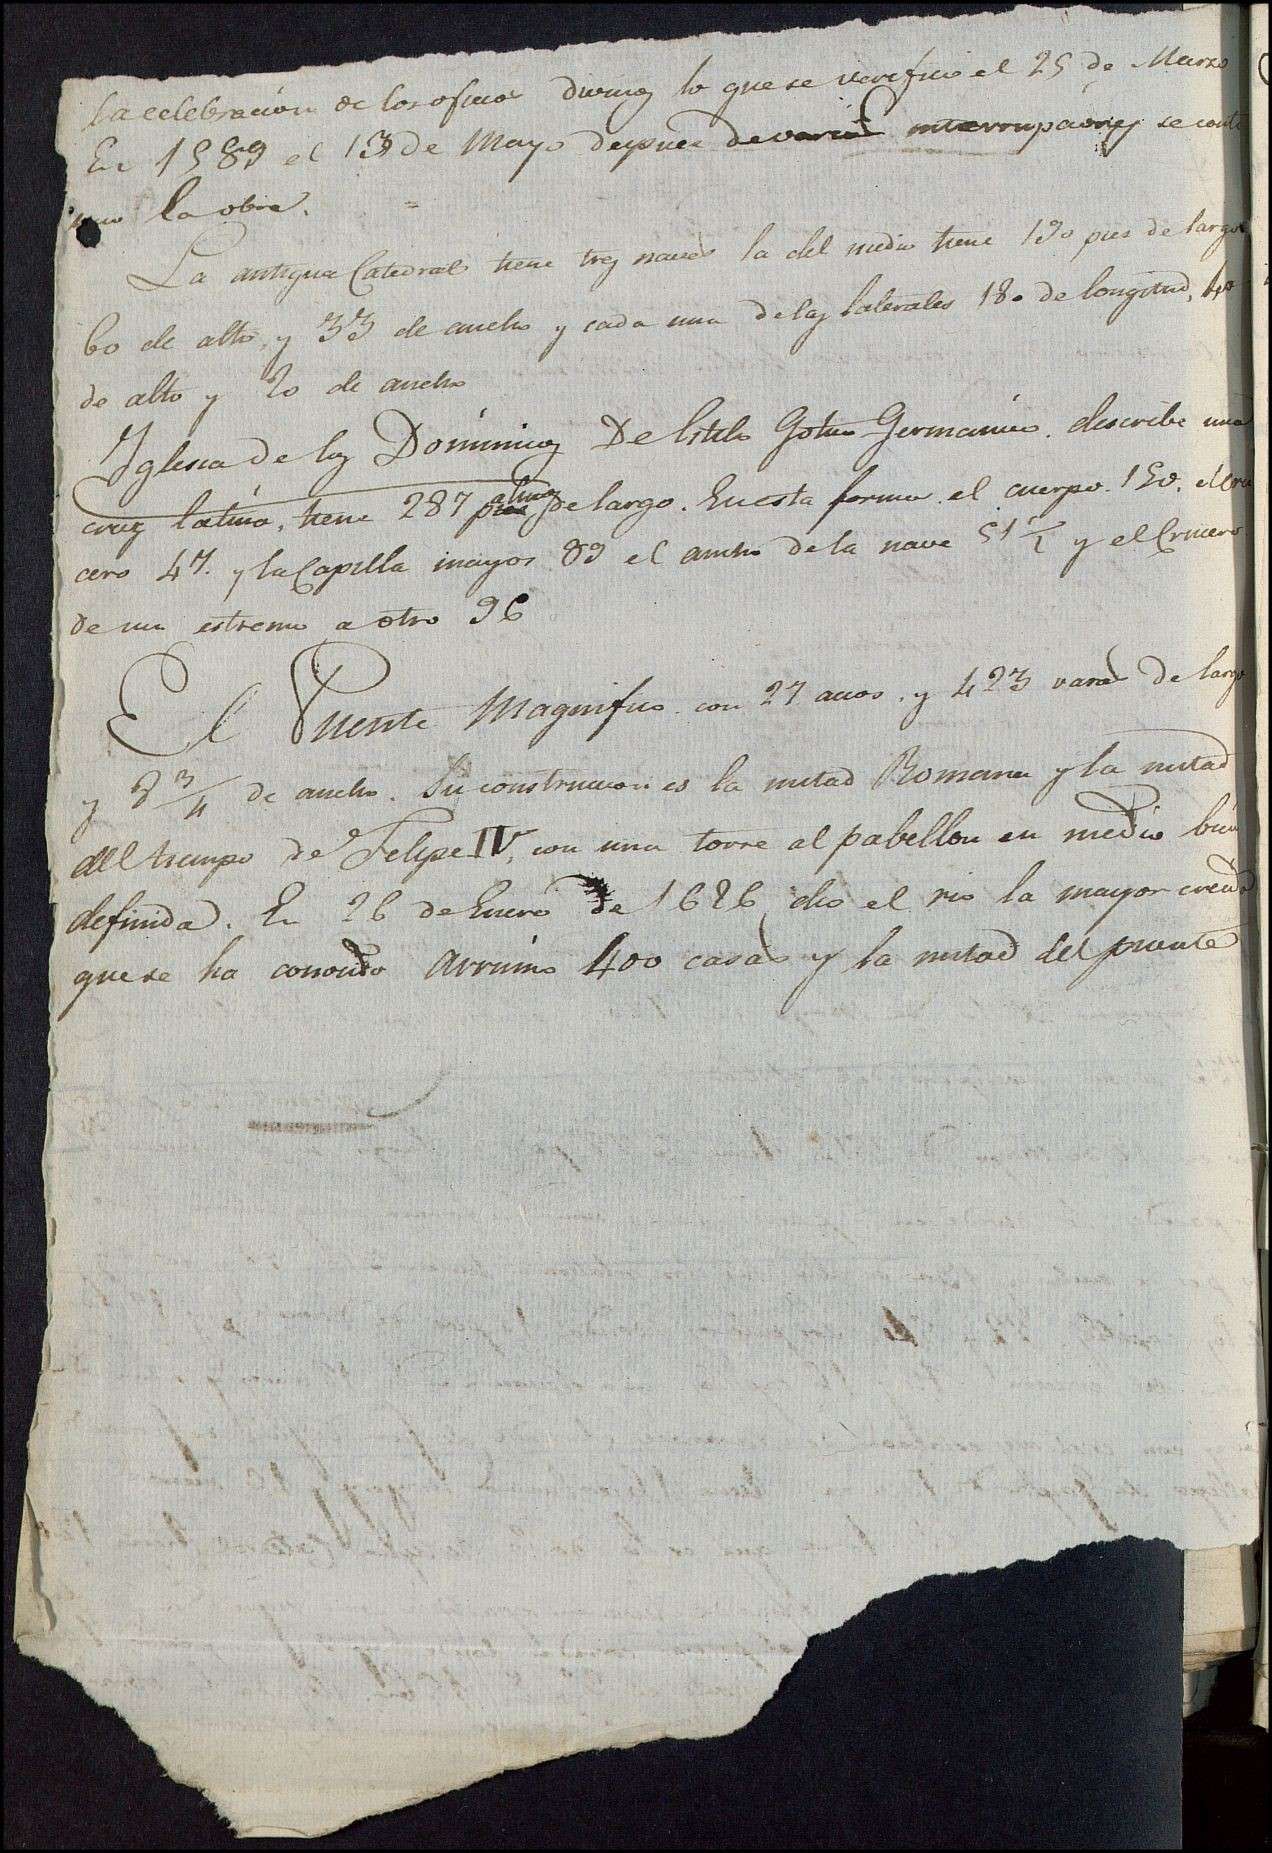 la celebracion de los ofícios divinos lo que se verefico el 25 de Marzo
En 1589 el 13 de Mayo despues de varias interrupciones se conti
nuo la obra.
La antigua Catedral tiene tres naves la del medio tiene 190 pies de largo
60 de alto, y 33 de ancho y cada una de las laterales 180 de longitud, 40
de alto y 20 de ancho
Yglesia de los Domínicos De Estilo Gotico Germanico. describe una
cruz latina, tiene 287 palmos de largo. En esta forma. el cuerpo 150. el cru
cero 47. y la Capilla mayor 89 el ancho de la nave 51 1/2 y el Crucero
de un estremo a otro 96
El Puente Magnifico con 27 arcos, y 423 varas de largo
y 8 3/4 de ancho. Su construccion es la mitad Romana y la mitad
del tiempo de Felipe IV, con una torre al pabellon en medio bien
definida. En 26 de Enero de 1626 dio el rio la mayor crecida
que se ha conocido arruino 400 casas y la mitad del puente